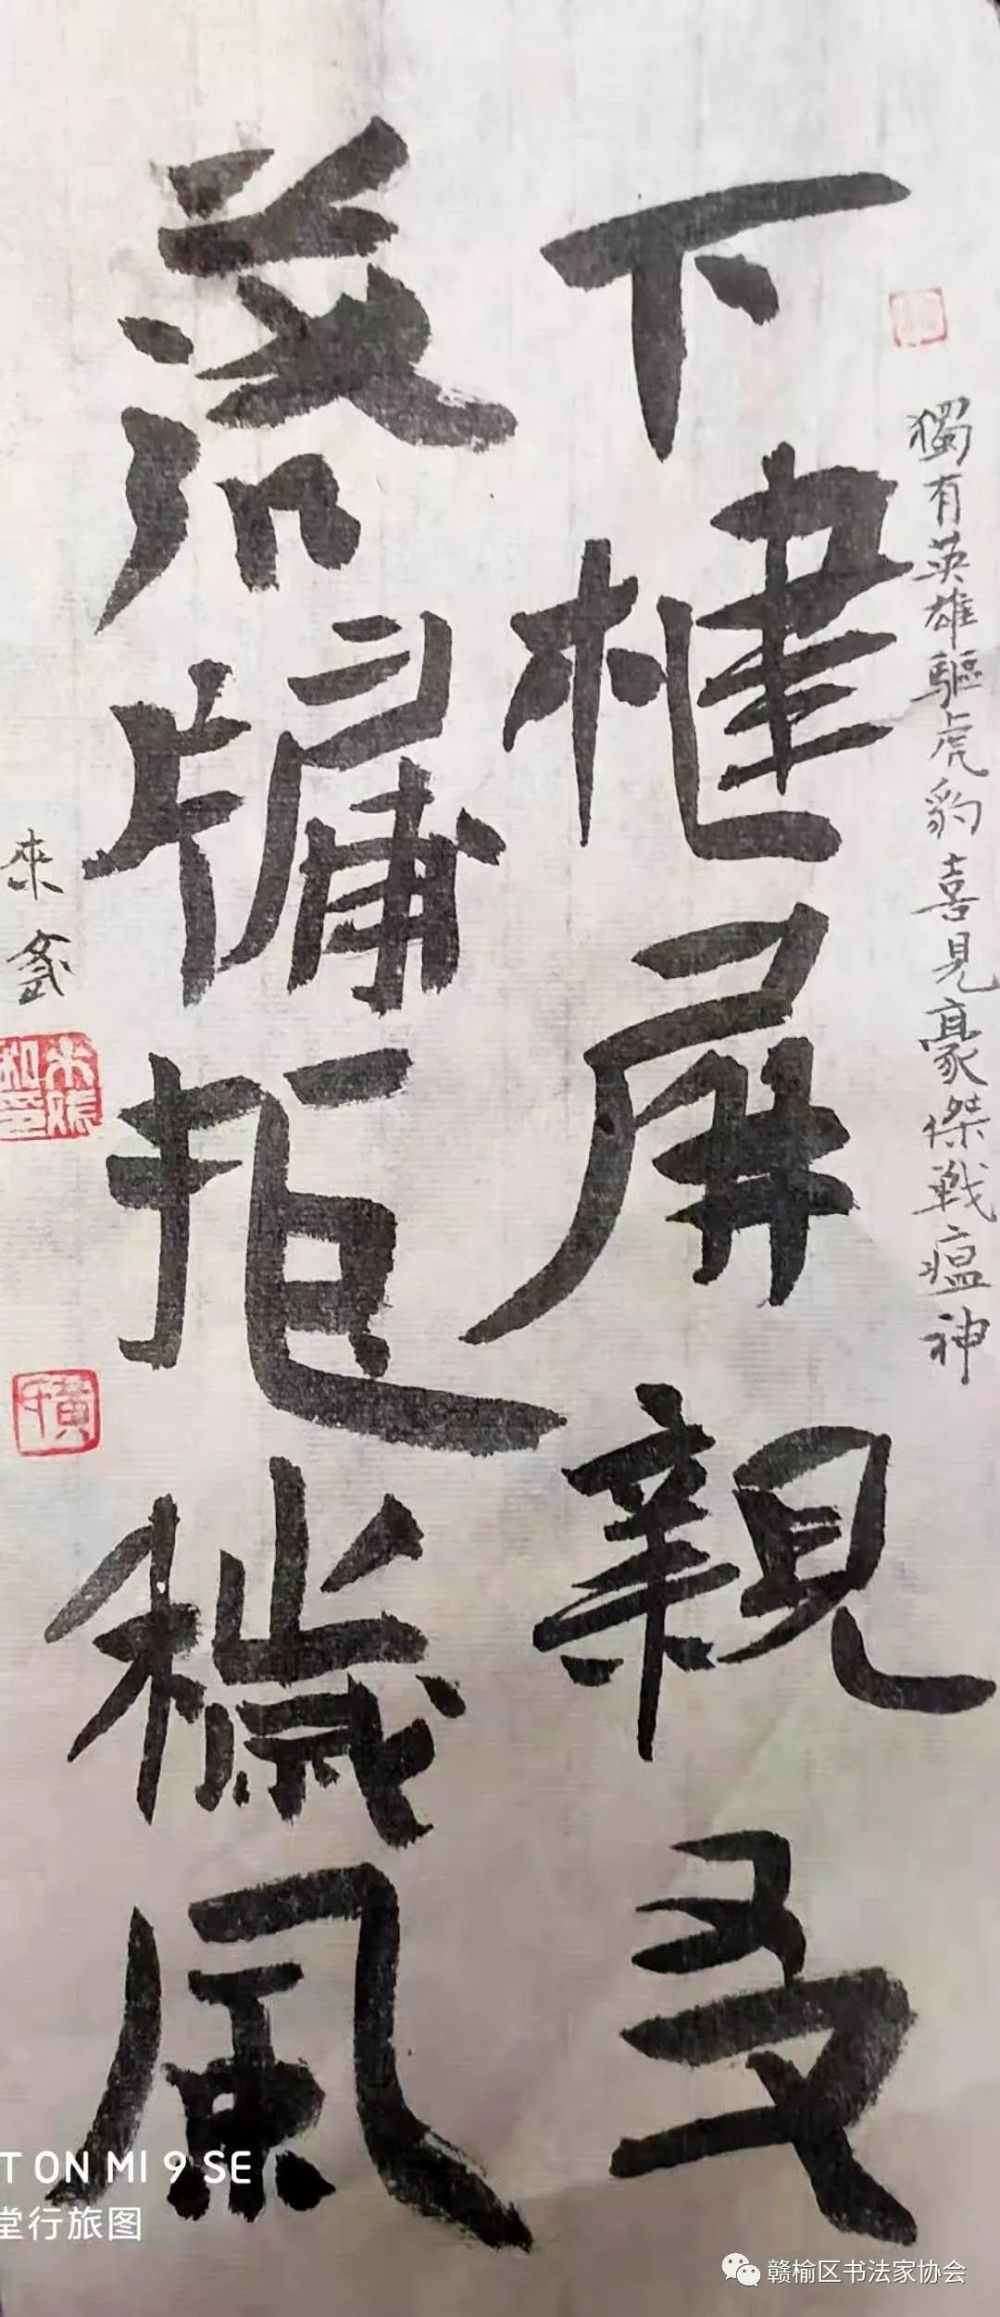 獨有英雄驅虎豹喜見豪傑戦瘟神
下楗屏親友
落牖拒穢風
來
T ON MI 9 SE
堂行旅图
赣榆区书法家协会